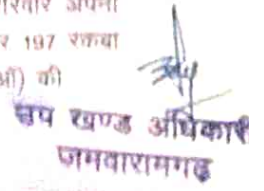 अपना
र 197 रकबा
की
उप खण्ड अधिकारी
जमवारामगढ